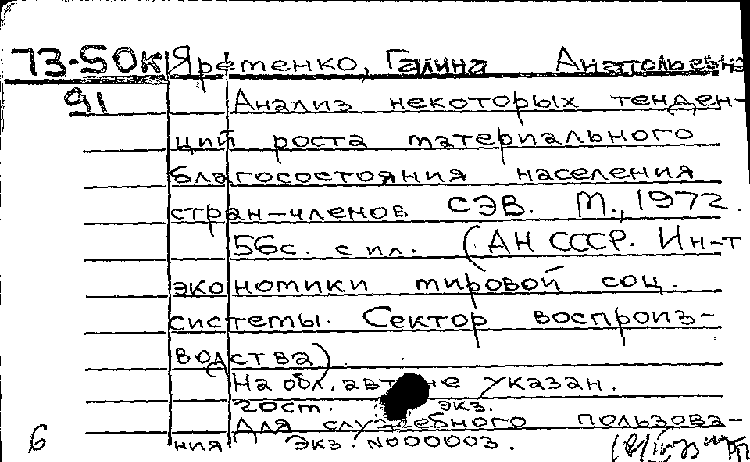 73-5OK Яременко, Галина Анатольевна
91 Анализ некоторых тенден-
ций роста материального
благосостояния населения
стран-членов СЭВ. М., 1972.
56с. с ил. (АН СССР. Ин-т
экономики мировой соц.
системы. Сектор воспроиз-
водства).
На обл. авт. не указан.
экз.
Для служебного пользова-
6 ния Экз. N000003.